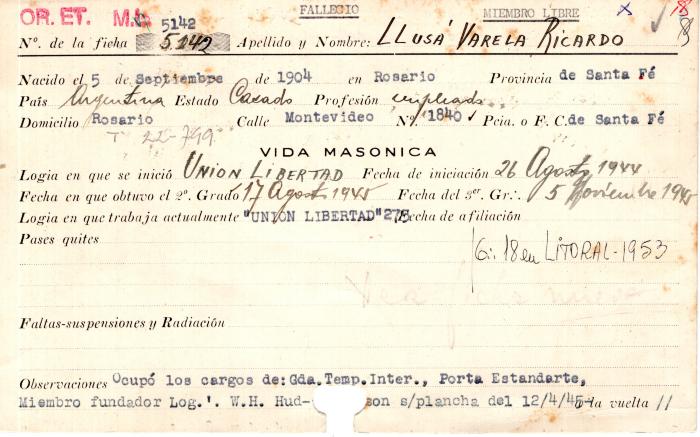 OR. ET. M.L. 5142 FALLECIO MIEMBRO LIBRE X 18
Nº. de la ficha 5.142 Apellido y Nombre: LLUSÁ VARELA RICARDO
Nacido el 5 de Septiembre de 1904 en Rosario Provincia de Santa Fé
País Argentina Estado Casado Profesión empleado
Domicilio Rosario Calle Montevideo Nº. 1840 Pcia. o F. C. de Santa Fé
T 22-799
VIDA MASONICA
Logia en que se inició UNION LIBERTAD Fecha de iniciación 26 Agosto 1944
Fecha en que obtuvo el 2º. Grado 17 Agosto 1945 Fecha del 3er. Gr∴. 5 Noviembre 194
Logia en que trabaja actualmente "UNIÓN LIBERTAD" 278 Fecha de afiliación
Pases quites
Gr: 18 en LITORAL-1953
Faltas-suspensiones y Radiación
Observaciones Ocupó los cargos de: Gda. Temp. Inter., Porta Estandarte,
Miembro fundador Log.'. W.H. Hud- son s/plancha del 12/4/45- a la vuelta //